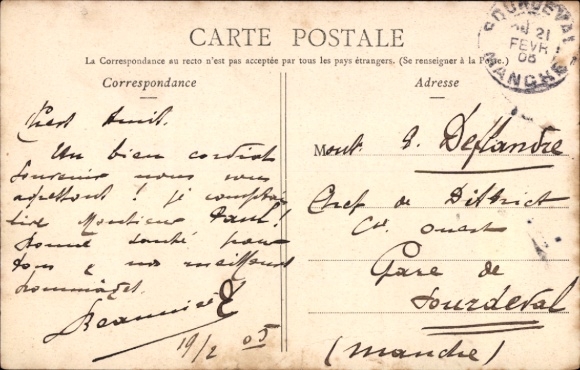 CARTE POSTALE
La Correspondance au recto n'est pas acceptée par tous les pays étrangers. (Se renseigner à la Poste.)
Correspondance
Adresse
SOURDEVAL
21
FEVR
05
MANCHE
Un bien cordial
souvenir nous vous
Monsieur
bonne santé pour
tous & nos meilleurs
hommages
19/2 05
E. Deflandre
Chef de District
Cie Ouest
Gare de
Sourdeval
(Manche)